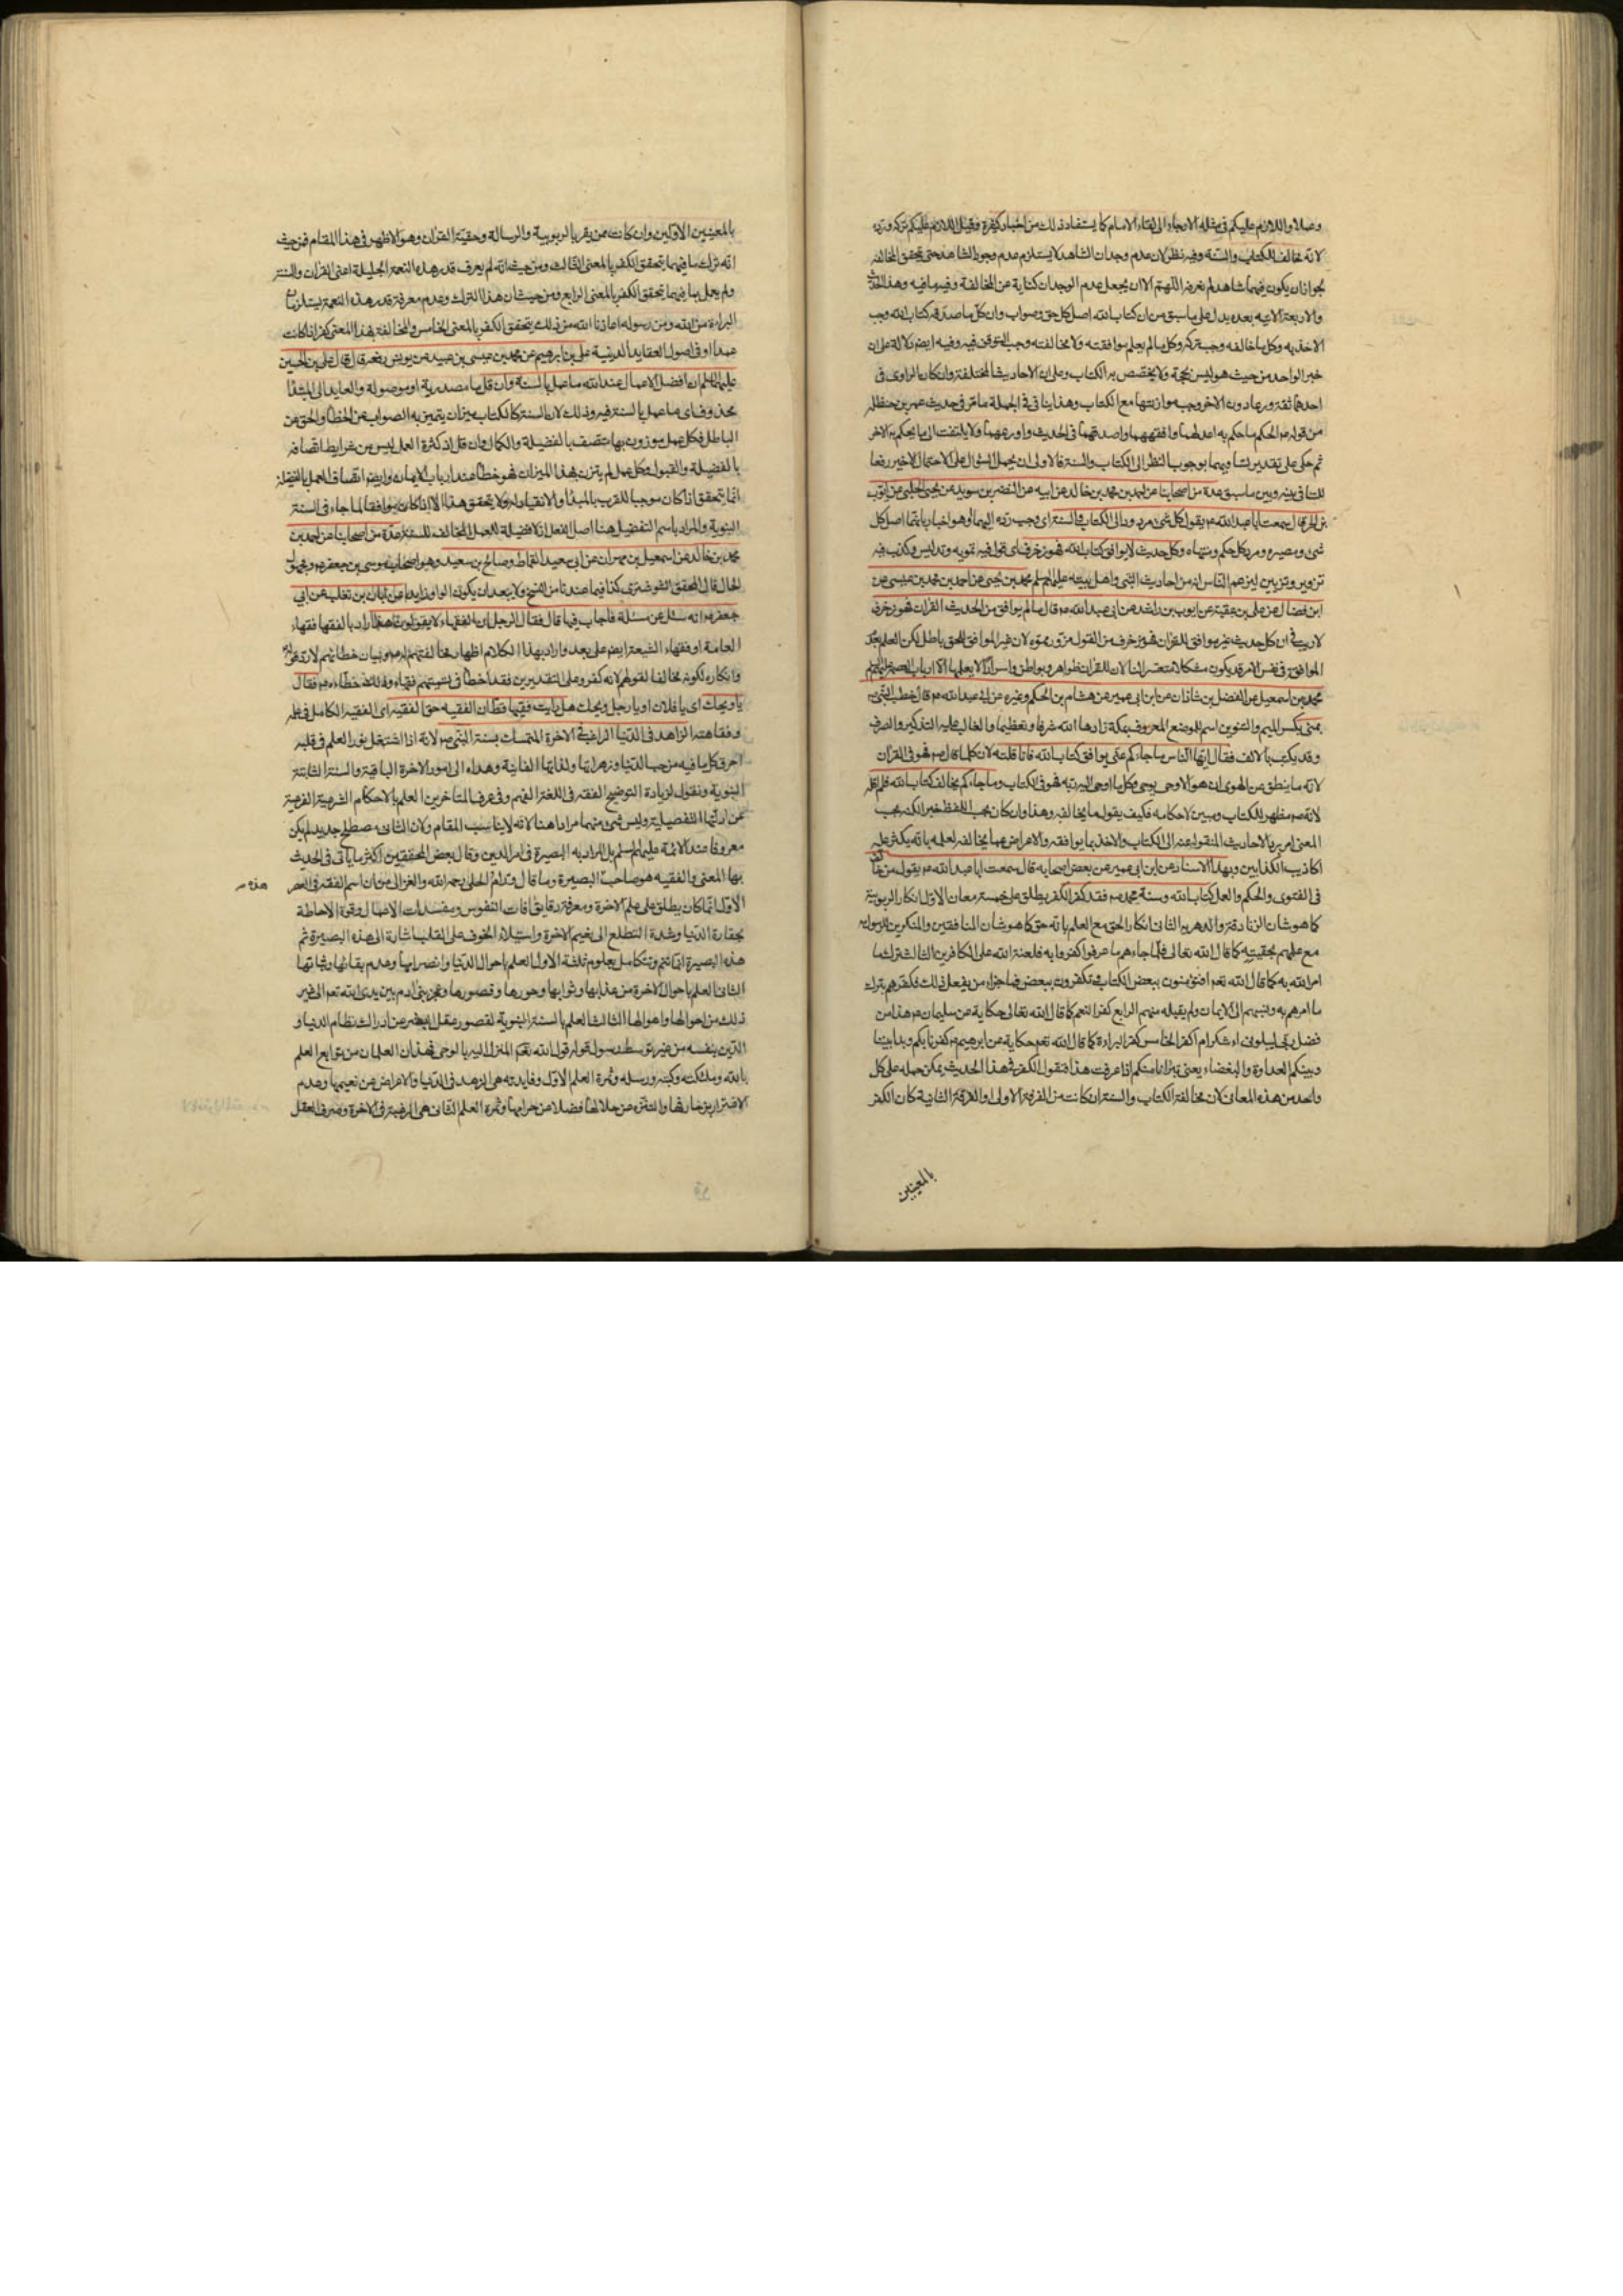 وصلا واللازم عليكم في مثله الارجاء الى لقاء الامام كما يستفاد ذلك من اخبار كثيرة وقيل اللازم عليكم تركه ورده
لانه مخالف للكتاب والسنة وفيه نظر لان عدم وجدان الشاهد لا يستلزم عدم وجود الشاهد حتى يتحقق المخالفة
لجواز ان يكون فيهما شاهد لم نعرفه اللهم الا ان يجعل عدم الوجدان كناية عن المخالفة وفيه ما فيه وهذا الحديث
والاربعة الاتية بعده يدل على ما سبق من ان كتاب الله اصل كل حق وصواب وان كل ما صدقه كتاب الله وجب
الاخذ به وكل ما خالفه وجب تركه وكل ما لم يعلم موافقته ولا مخالفته وجب التوقف فيه وفيه ايضا دلالة على ان
خبر الواحد من حيث هو ليس بحجة ولا يخصص به الكتاب وعلى ان الاحاديث المختلفة وان كان الراوى فى
احدهما ثقة ورعا دون الاخر وجب موازنتها مع الكتاب وهذا ينافى فى الجملة ما مر فى حديث عمر بن حنظلة
من قوله ع الحكم ما حكم به اعدلهما وافقههما واصدقهما فى الحديث واورعهما ولا يلتفت الى ما يحكم به الاخر
ثم حكى على تقدير تساويهما بوجوب النظر الى الكتاب والسنة فالاولى ان يحمل السؤال على الاحتمال الاخير رفعا
للتنافى بينه وبين ما سبق عدة من اصحابنا عن احمد بن محمد بن خالد عن ابيه عن النضر بن سويد عن يحيى الحلبى عن ايوب
بن الحر قال سمعت ابا عبد الله ع يقول كل شئ مردود الى الكتاب والسنة اى وجب رده اليهما او هو اخبار بانهما اصل كل
شئ ومصيره ومرد كل حكم ومنتهاه وكل حديث لا يوافق كتاب الله فهو زخرف اى قول فيه تمويه وتدليس وكذب فيه
تزوير وتزيين ليزعم الناس انه من احاديث النبى واهل بيته عليهم السلم محمد بن يحيى عن احمد بن محمد بن عيسى عن
ابن فضال عن على بن عقبة عن ايوب بن راشد عن ابى عبد الله ع قال ما لم يوافق من الحديث القران فهو زخرف
لا ريب فى ان كل حديث غير موافق للقران فهو زخرف من القول مزور مموه لان غير الموافق للحق باطل لكن العلم بعدم
الموافق فى نفس الامر قد يكون مشكلا متعسرا لنا لان للقران ظواهر وبواطن واسرارا لا يعلمها الا ارباب العصمة عليهم السلم
محمد بن اسمعيل عن الفضل بن شاذان عن ابن ابى عمير عن هشام بن الحكم وغيره عن ابى عبد الله ع قال خطب النبى ص
بمنى بكسر الميم والتنوين اسم للموضع المعروف بمكة زادها الله شرفا وتعظيما والغالب عليه التذكير والصرف
وقد يكتب بالالف فقال ايها الناس ما جاءكم عنى يوافق كتاب الله فانا قلته لان كلما قال ص فهو فى القران
لانه ما ينطق عن الهوى ان هو الا وحى يوحى وكل ما اوحى اليه ربه فهو فى الكتاب وما جاءكم يخالف كتاب الله فلم اقله
لانه ص مظهر للكتاب ومبين لاحكامه فكيف يقول ما يخالفه وهذا وان كان بحسب اللفظ خبرا لكنه بحسب
المعنى امر برد الاحاديث المنقولة عنه الى الكتاب والاخذ بما يوافقه والاعراض عما يخالفه لعلمه بانه يكثر عليه
اكاذيب الكذابين وبهذا الاسناد عن ابن ابى عمير عن بعض اصحابه قال سمعت ابا عبد الله ع يقول من خالف
فى الفتوى والحكم والعمل كتاب الله وسنة محمد ص فقد كفر الكفر يطلق على خمسة معان الاول انكار الربوبية
كما هو شان الزنادقة والدهرية الثانى انكار الحق مع العلم بانه حق كما هو شان المنافقين والمنكرين للرسول
مع علمهم بحقيته كما قال الله تعالى فلما جاءهم ما عرفوا كفروا به فلعنة الله على الكافرين الثالث ترك ما
امر الله به كما قال الله تعم افتؤمنون ببعض الكتاب وتكفرون ببعض فما جزاء من يفعل ذلك فكفرهم بترك
ما امرهم به ونسبهم الى الايمان ولم يقبله منهم الرابع كفر النعم كما قال الله تعالى حكاية عن سليمان ع هذا من
فضل ربى ليبلونى ءاشكر ام اكفر الخامس كفر البراءة كما قال الله تعم حكاية عن ابرهيم ع كفرنا بكم وبدا بيننا
وبينكم العداوة والبغضاء يعنى تبرانا منكم اذا عرفت هذا فنقول الكفر فى هذا الحديث يمكن حمله على كل
واحد من هذه المعانى لان مخالفة الكتاب والسنة ان كانت من الفرقة الاولى او الفرقة الثانية كان الكفر
بالمعنيين
بالمعنيين الاولين وان كانت ممن يقر بالربوبية والرسالة وحقية القران وهو الاظهر فى هذا المقام فمن حيث
انه ترك ما فيهما يتحقق الكفر بالمعنى الثالث ومن حيث انه لم يعرف قدر هذه النعمة الجليلة اعنى القران والسنة
ولم يعمل بما فيهما يتحقق الكفر بالمعنى الرابع ومن حيث ان هذا الترك وعدم معرفة قدر هذه النعمة يستلزمان
البراءة من الله ومن رسوله اعاذنا الله من ذلك يتحقق الكفر بالمعنى الخامس والمخالفة بهذا المعنى كفر اذا كانت
عمدا او فى اصول العقايد الدينية على بن ابرهيم عن محمد بن عيسى بن عبيد عن يونس رفعه قال قال على بن الحسين
عليهما السلم ان افضل الاعمال عند الله ما عمل بالسنة وان قل ما مصدرية او موصولة والعايد الى المبتدا
محذوف اى ما عمل بالسنة فيه وذلك لان السنة كالكتاب ميزان يتميز به الصواب عن الخطأ والحق عن
الباطل فكل عمل موزون بها متصف بالفضيلة والكمال وان قل اذ كثرة العمل ليس من شرايط اتصافه
بالفضيلة والقبول وكل عمل لم يتزن بهذا الميزان فهو خطأ عند ارباب الايمان وايضا اتصاف العمل بالفضيلة
انما يتحقق اذا كان موجبا للقرب بالمبدأ والانقياد له ولا يتحقق هذا الا اذا كان موافقا لما جاء فى السنة
النبوية والمراد باسم التفضيل هنا اصل الفعل اذ لا فضيلة للعمل المخالف للسنة عدة من اصحابنا عن احمد بن
محمد بن خالد عن اسمعيل بن مهران عن ابى سعيد القماط وصالح بن سعيد وهو من اصحاب موسى بن جعفر ع ومجهول
الحال قال المحقق الشوشترى كذا فيما عندنا من النسخ ولا يبعد ان يكون الواو زايدا عن ابان بن تغلب عن ابى
جعفر ع انه سئل عن مسئلة فاجاب فيها قال فقال الرجل ان الفقهاء لا يقولون هذا اراد بالفقهاء فقهاء
العامة او فقهاء الشيعة ايضا على بعد واراد بهذا الكلام اظهار مخالفتهم له ع وبيان خطائهم لا رد قوله
وانكاره لكونه مخالفا لقولهم لانه كفر وعلى التقديرين فقد اخطأ فى تسميتهم فقهاء ولذلك خطأه ع فقال
يا ويحك اى يا فلان او يا رجل ويحك هل رايت فقيها قط ان الفقيه حق الفقيه اى الفقيه الكامل فى علمه
وفقاهته الزاهد فى الدنيا الراغب فى الاخرة المتمسك بسنة النبى ص لانه اذا اشتعل نور العلم فى قلبه
احرق كل ما فيه من حب الدنيا وزهراتها ولذاتها الفانية وهداه الى امور الاخرة الباقية والسنة الثابتة
النبوية ونقول لزيادة التوضيح الفقه فى اللغة الفهم وفى عرف المتاخرين العلم بالاحكام الشرعية الفرعية
عن ادلتها التفصيلية وليس شئ منهما مرادا هنا لانه لا يناسب المقام ولان الثانى مصطلح جديد لم يكن
معروفا عند الائمة عليهم السلم بل المراد به البصيرة فى امر الدين وقال بعض المحققين اكثر ما ياتى فى الحديث
بهذا المعنى والفقيه هو صاحب البصيرة وما قال ورام الحلى رحمه الله والغزالى من ان اسم الفقه فى العصر
هذه
الاول انما كان يطلق على علم الاخرة ومعرفة دقايق افات النفوس ومفسدات الاعمال وقوة الاحاطة
بحقارة الدنيا وشدة التطلع الى نعيم الاخرة واستيلاء الخوف على القلب اشارة الى هذه البصيرة ثم
هذه البصيرة انما تتم وتتكامل بعلوم ثلثة الاول العلم باحوال الدنيا وانصرامها وعدم بقائها وثباتها
الثانى العلم باحوال الاخرة من عذابها وثوابها وحورها وقصورها وعجز بنى ادم بين يدى الله تعم الى غير
ذلك من احوالها واهوالها الثالث العلم بالسنة النبوية لقصور عقل البشر عن ادراك نظام الدنيا و
الدين بنفسه من غير توسط رسول قوله قول الله تعم المنزل اليه بالوحى فهذان العلمان من توابع العلم
بالله وملئكته وكتبه ورسله وثمرة العلم الاول وفايدته هى الزهد فى الدنيا والاعراض عن نعيمها وعدم
الاغترار بزخارفها والتنزه عن حلالها فضلا عن حرامها وثمرة العلم الثانى هى الرغبة فى الاخرة وصرف العقل